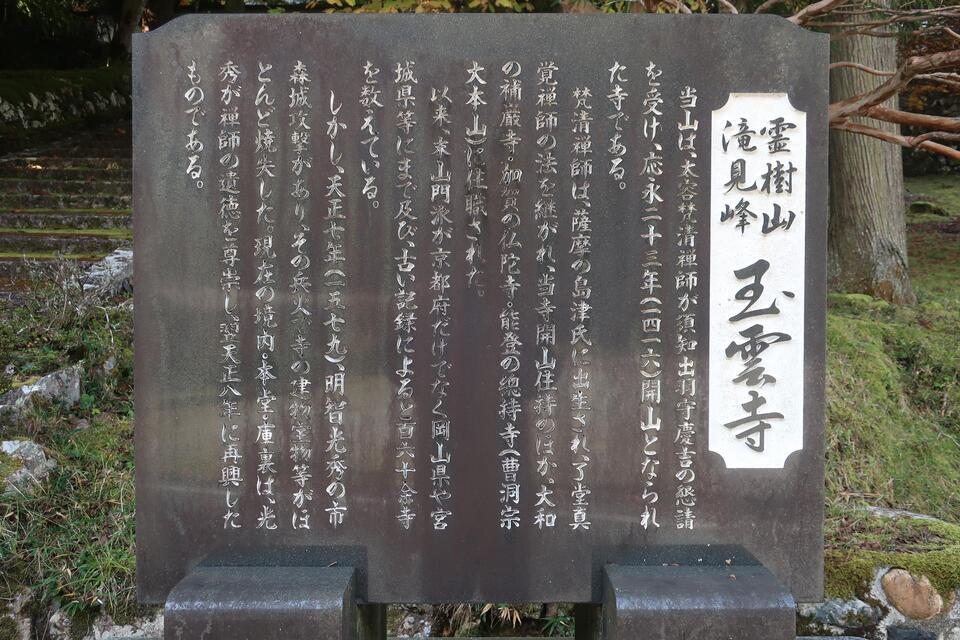 霊樹山
滝見峰
玉雲寺
当山は、太容梵清禅師が須知出羽守慶吉の懇請
を受け、応永二十三年(一四一六)開山となられ
た寺である。
梵清禅師は、薩摩の島津氏に出生され、了堂真
覚禅師の法を継がれ、当寺開山住持のほか、大和
の補厳寺。加賀の仏陀寺。能登の總持寺(曹洞宗
大本山)に住職された。
以来、本山門派が京都府だけでなく岡山県や宮
城県等にまで及び、古い記録によると百六十余寺
を数えている。
しかし、天正七年(一五七九)、明智光秀の市
森城攻撃があり、その兵火で寺の建物宝物等がほ
とんど焼失した。現在の境内。本堂。庫裏は、光
秀が禅師の遺徳を尊崇し、翌天正八年に再興した
ものである。